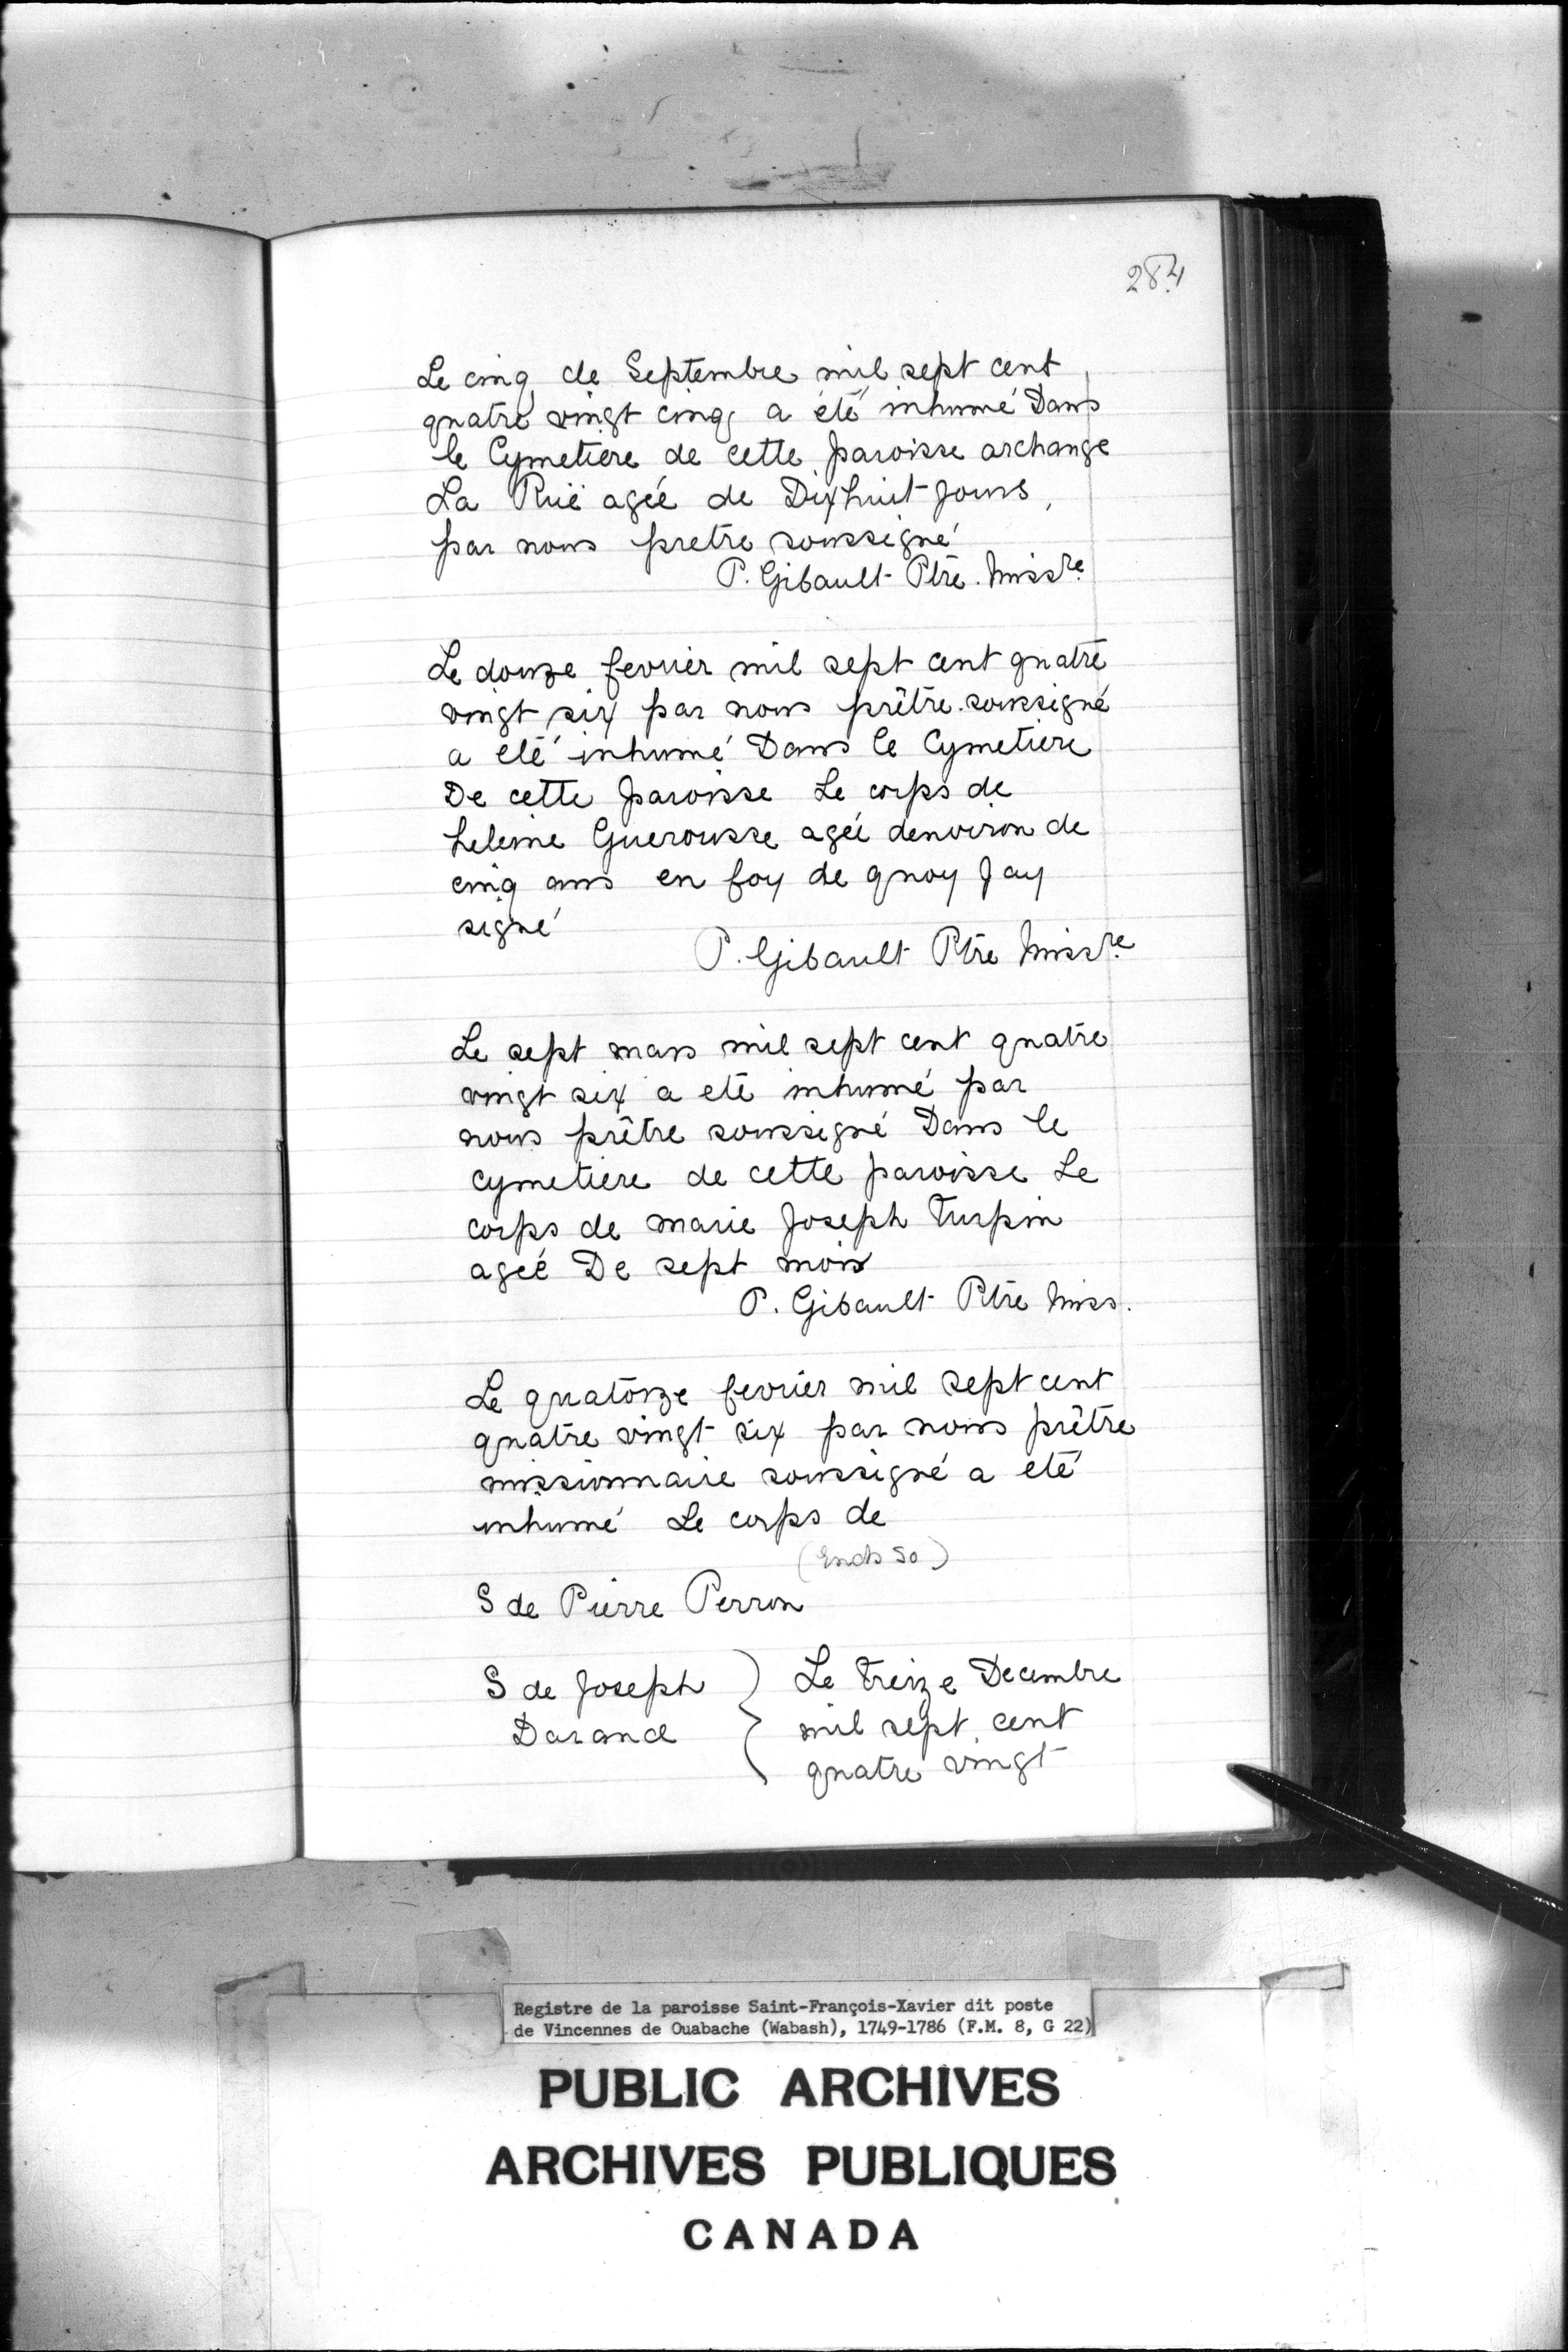 284
Le cinq de Septembre mil sept cent
quatre vingt cinq a été inhumé Dans
le Cymetiere de cette paroisse archange
La Ruë agée de Dixhuit Jours,
par nous pretre soussigné
P. Gibault Ptre. Missre.
Le douze fevrier mil sept cent quatre
vingt six par nous prêtre soussigné
a eté inhumé Dans le Cymetiere
De cette paroisse Le corps de
heleine Guerousse agée denviron de
cinq ans en foy de quoy Jay
signé
P. Gibault Ptre Missre.
Le sept mars mil sept cent quatre
vingt six a eté inhumé par
nous prêtre soussigné Dans le
cymetiere de cette paroisse Le
corps de marie Joseph Turpin
ageé De sept mois
P. Gibault Ptre Miss.
Le quatorze fevrier mil sept cent
quatre vingt six par nous prêtre
missionnaire soussigné a eté
inhumé Le corps de
(Ends so)
S de Pierre Perron
S de Joseph } Le treize Decembre
Darand } mil sept cent
quatre vingt
Registre de la paroisse Saint-François-Xavier dit poste
de Vincennes de Ouabache (Wabash), 1749-1786 (F.M. 8, G 22)
PUBLIC ARCHIVES
ARCHIVES PUBLIQUES
CANADA